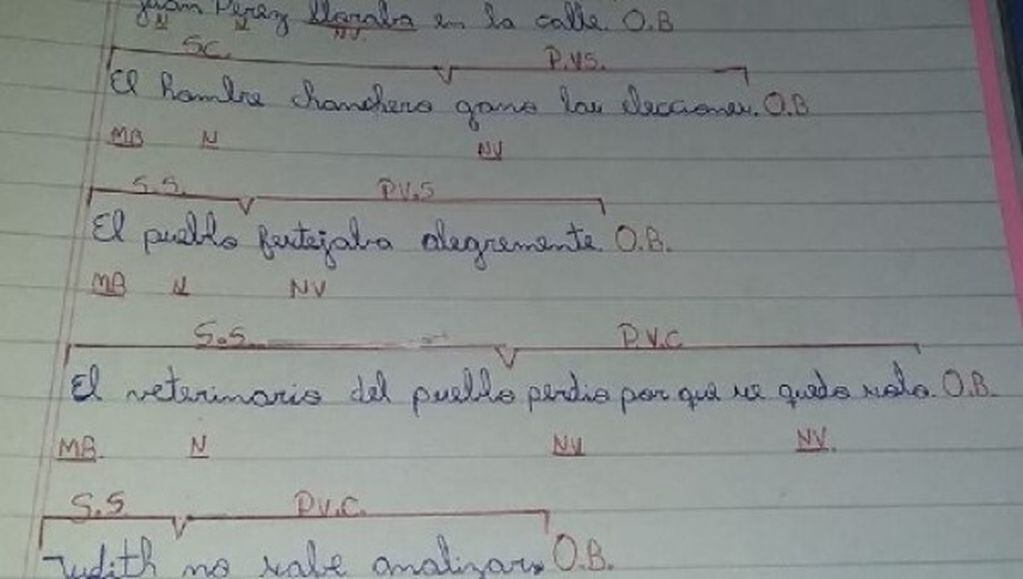 Juan Perez lloraba en la calle. O.B
N N NV.
SC. P.VS.
El hombre chanchero gano las elecciones. O.B
MB N NV
S.S. PV.S
El pueblo festejaba alegremente. O.B.
MB N NV
S.S. P.V.C
El veterinario del pueblo perdio por que se quedo solo. O.B.
MB. N NV NV.
S.S P.V.C.
Judith no sabe analizar. O.B.